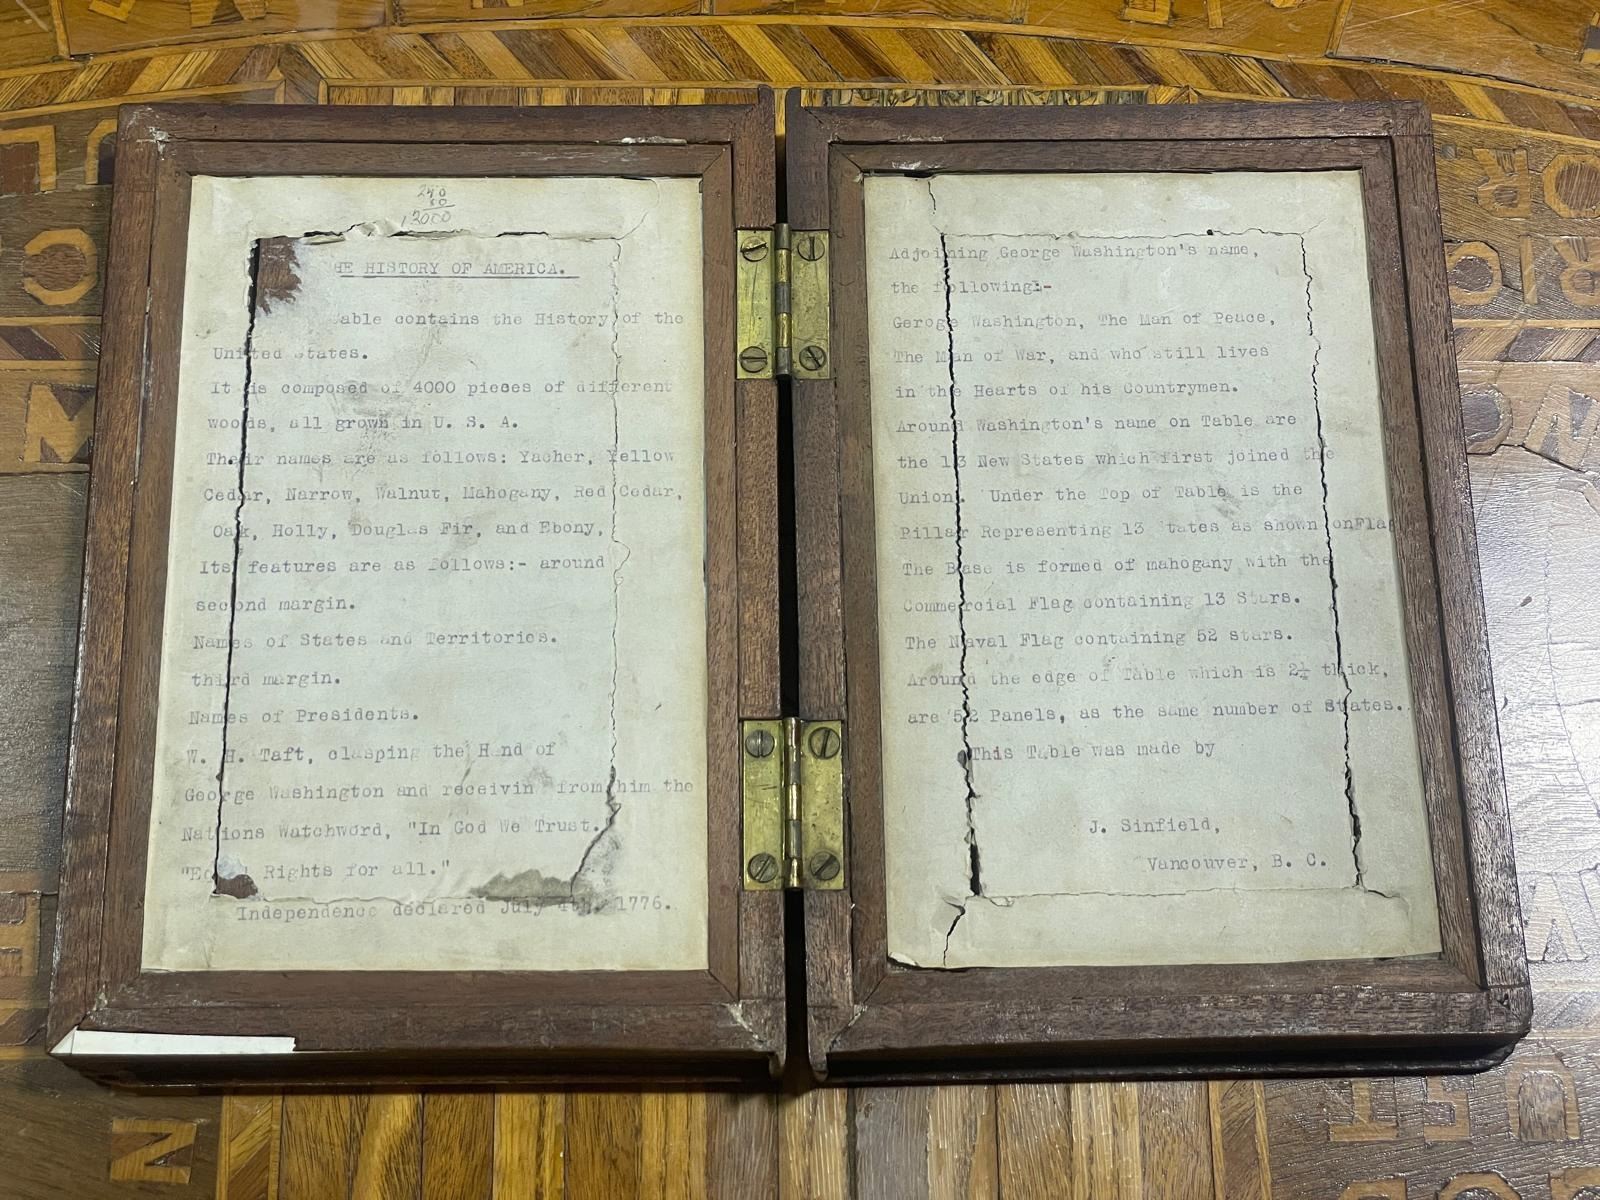 240
50
12000
HE HISTORY OF AMERICA.
able contains the History of the
United States.
It is composed of 4000 pieces of different
woods, all grown in U. S. A.
Their names are as follows: Yacher, Yellow
Cedar, Narrow, Walnut, Mahogany, Red Cedar,
Oak, Holly, Douglas Fir, and Ebony,
Its features are as follows:- around
second margin.
Names of States and Territories.
third margin.
Names of Presidents.
W. H. Taft, clasping the Hand of
George Washington and receivin from him the
Nations Watchword, "In God We Trust."
"Equal Rights for all."
Independence declared July 4th. 1776.
Adjoining George Washington's name,
the following:-
Geroge Washington, The Man of Peace,
The Man of War, and who still lives
in the Hearts of his Countrymen.
Around Washington's name on Table are
the 13 New States which first joined the
Union. Under the Top of Table is the
Pillar Representing 13 States as shown onFlag
The Base is formed of mahogany with the
Commercial Flag containing 13 Stars.
The Naval Flag containing 52 stars.
Around the edge of Table which is 2¼ thick,
are 52 Panels, as the same number of States.
This Table was made by
J. Sinfield,
Vancouver, B. C.